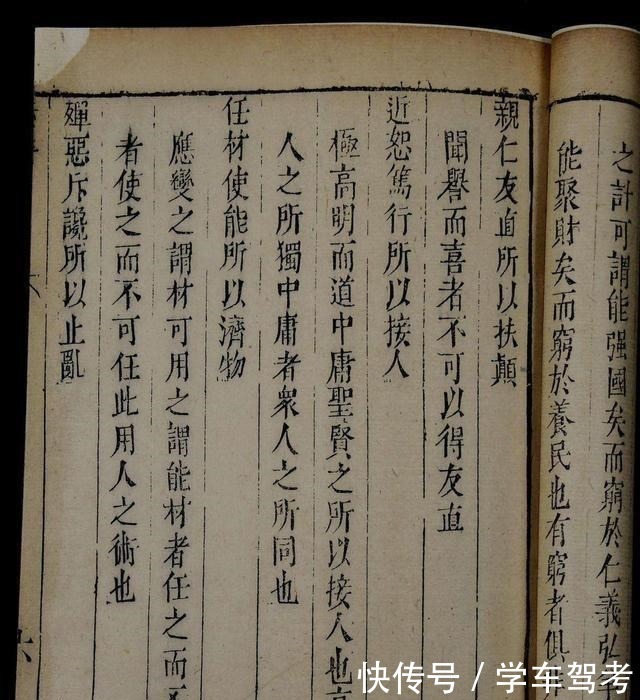 之計可謂能强國矣而窮於仁義弘
能聚財矣而窮於養民也有窮者俱
親仁友直所以扶顛
聞譽而喜者不可以得友直
近恕篤行所以接人
極高明而道中庸聖賢之所以接人也高
人之所獨中庸者衆人之所同也
任材使能所以濟物
應變之謂材可用之謂能材者任之而不
者使之而不可任此用人之術也
殫惡斥讒所以止亂
快传号 / 学车驾考